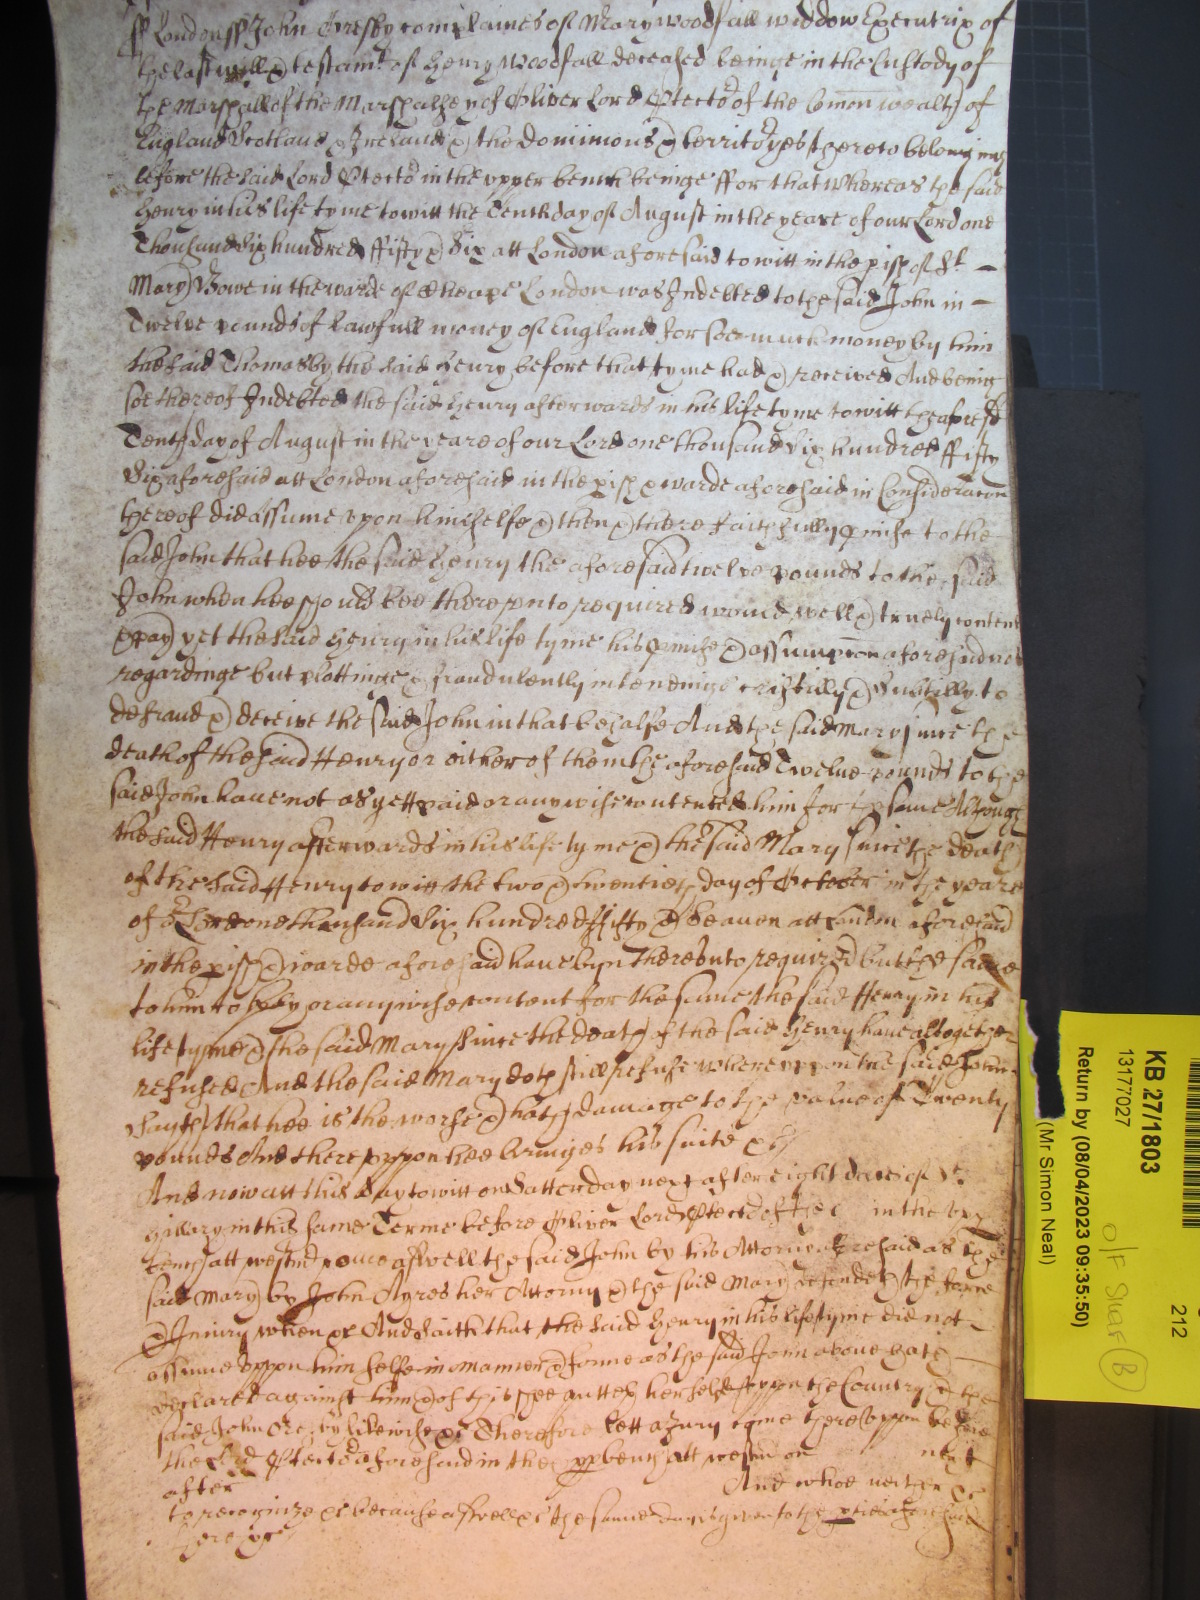 ff London ss John Gresby complaines of Mary Woodfall widdow Executrix of
the last will & testamt of Henry Woodfall deceased beinge in the Custody of
the Marshall of the Marshalsey of Oliver Lord Ptector of the Comon wealth of
England Scotland & Ireland & the dominions & territoryes thereto belonging
before the said Lord Ptector in the upper bench beinge ffor that whereas the said
Henry in his life tyme to witt the Tenth day of August in the yeare of our Lord one
Thousand Six hundred ffifty & Six att London aforesaid to witt in the pish of St
Mary Bowe in the warde of Cheape London was Indebted to the said John in
Twelve pounds of lawfull money of England for soe much money by him
the said Thomas by the said Henry before that tyme had & received And being
soe thereof Indebted the said Henry afterwards in his life tyme to witt the aforesd
Tenth day of August in the yeare of our Lord one thousand Six hundred ffifty
Six aforesaid att London aforesaid in the pish & warde aforesaid in Consideracon
thereof did assume upon himselfe & then & there faithfully pmise to the
said John that hee the said Henry the aforesaid twelve pounds to the said
John when hee should bee thereunto required would well & truely content
& pay yet the said Henry in his life tyme his pmise & assumpcon aforesaid not
regardinge but plottinge & fraudulently intendinge craftilly & subtilly to
defraud & deceive the said John in that behalfe And the said Mary since the
death of the said Henry or either of them the aforesaid Twelve pounds to the
said John have not as yett paid or any wise contented him for the same Although
the said Henry afterwards in his life tyme & the said Mary since the death
of the said Henry to witt the two & twentieth day of October in the yeare
of or Lord one thousand Six hundred ffifty & Seaven att London aforesaid
in the pish & warde aforesaid have byn thereunto required but the same
to him to pay or any wise content for the same the said Henry in his
life tyme & the said Mary since the death of the said Henry have altogether
refused And the said Mary doth still refuse whereuppon the said John
sayth that hee is the worse & hath damage to the value of Twenty
pounds And thereuppon hee bringes his suite &c
And now att this day to witt on Satterday next after eight daies of St
Hillary in this same Terme before Oliver Lord Ptector of the C in the upp
bench att westm come aswell the said John by his Attorny aforesaid as the
said Mary by John Ayres her Attorny & the said Mary defendeth the force
& Iniury when &c And saith that the said Henry in his life tyme did not
assume uppon him selfe in manner & forme as the said John above hath
declared against him & of this shee putteth her selfe uppon the Country & the
said John Gresby likewise &c Therefore lett a Jury come thereuppon before
the Lord Ptector aforesaid in the upp bench att westm on next
after And whoe neither &c
to recognize &c because aswell &c the same day is given to the pties aforesaid
there &c
KB 27/1803
13177027
Return by (08/04/2023 09:35:50)
(Mr Simon Neal)
212
O/F Shelf B